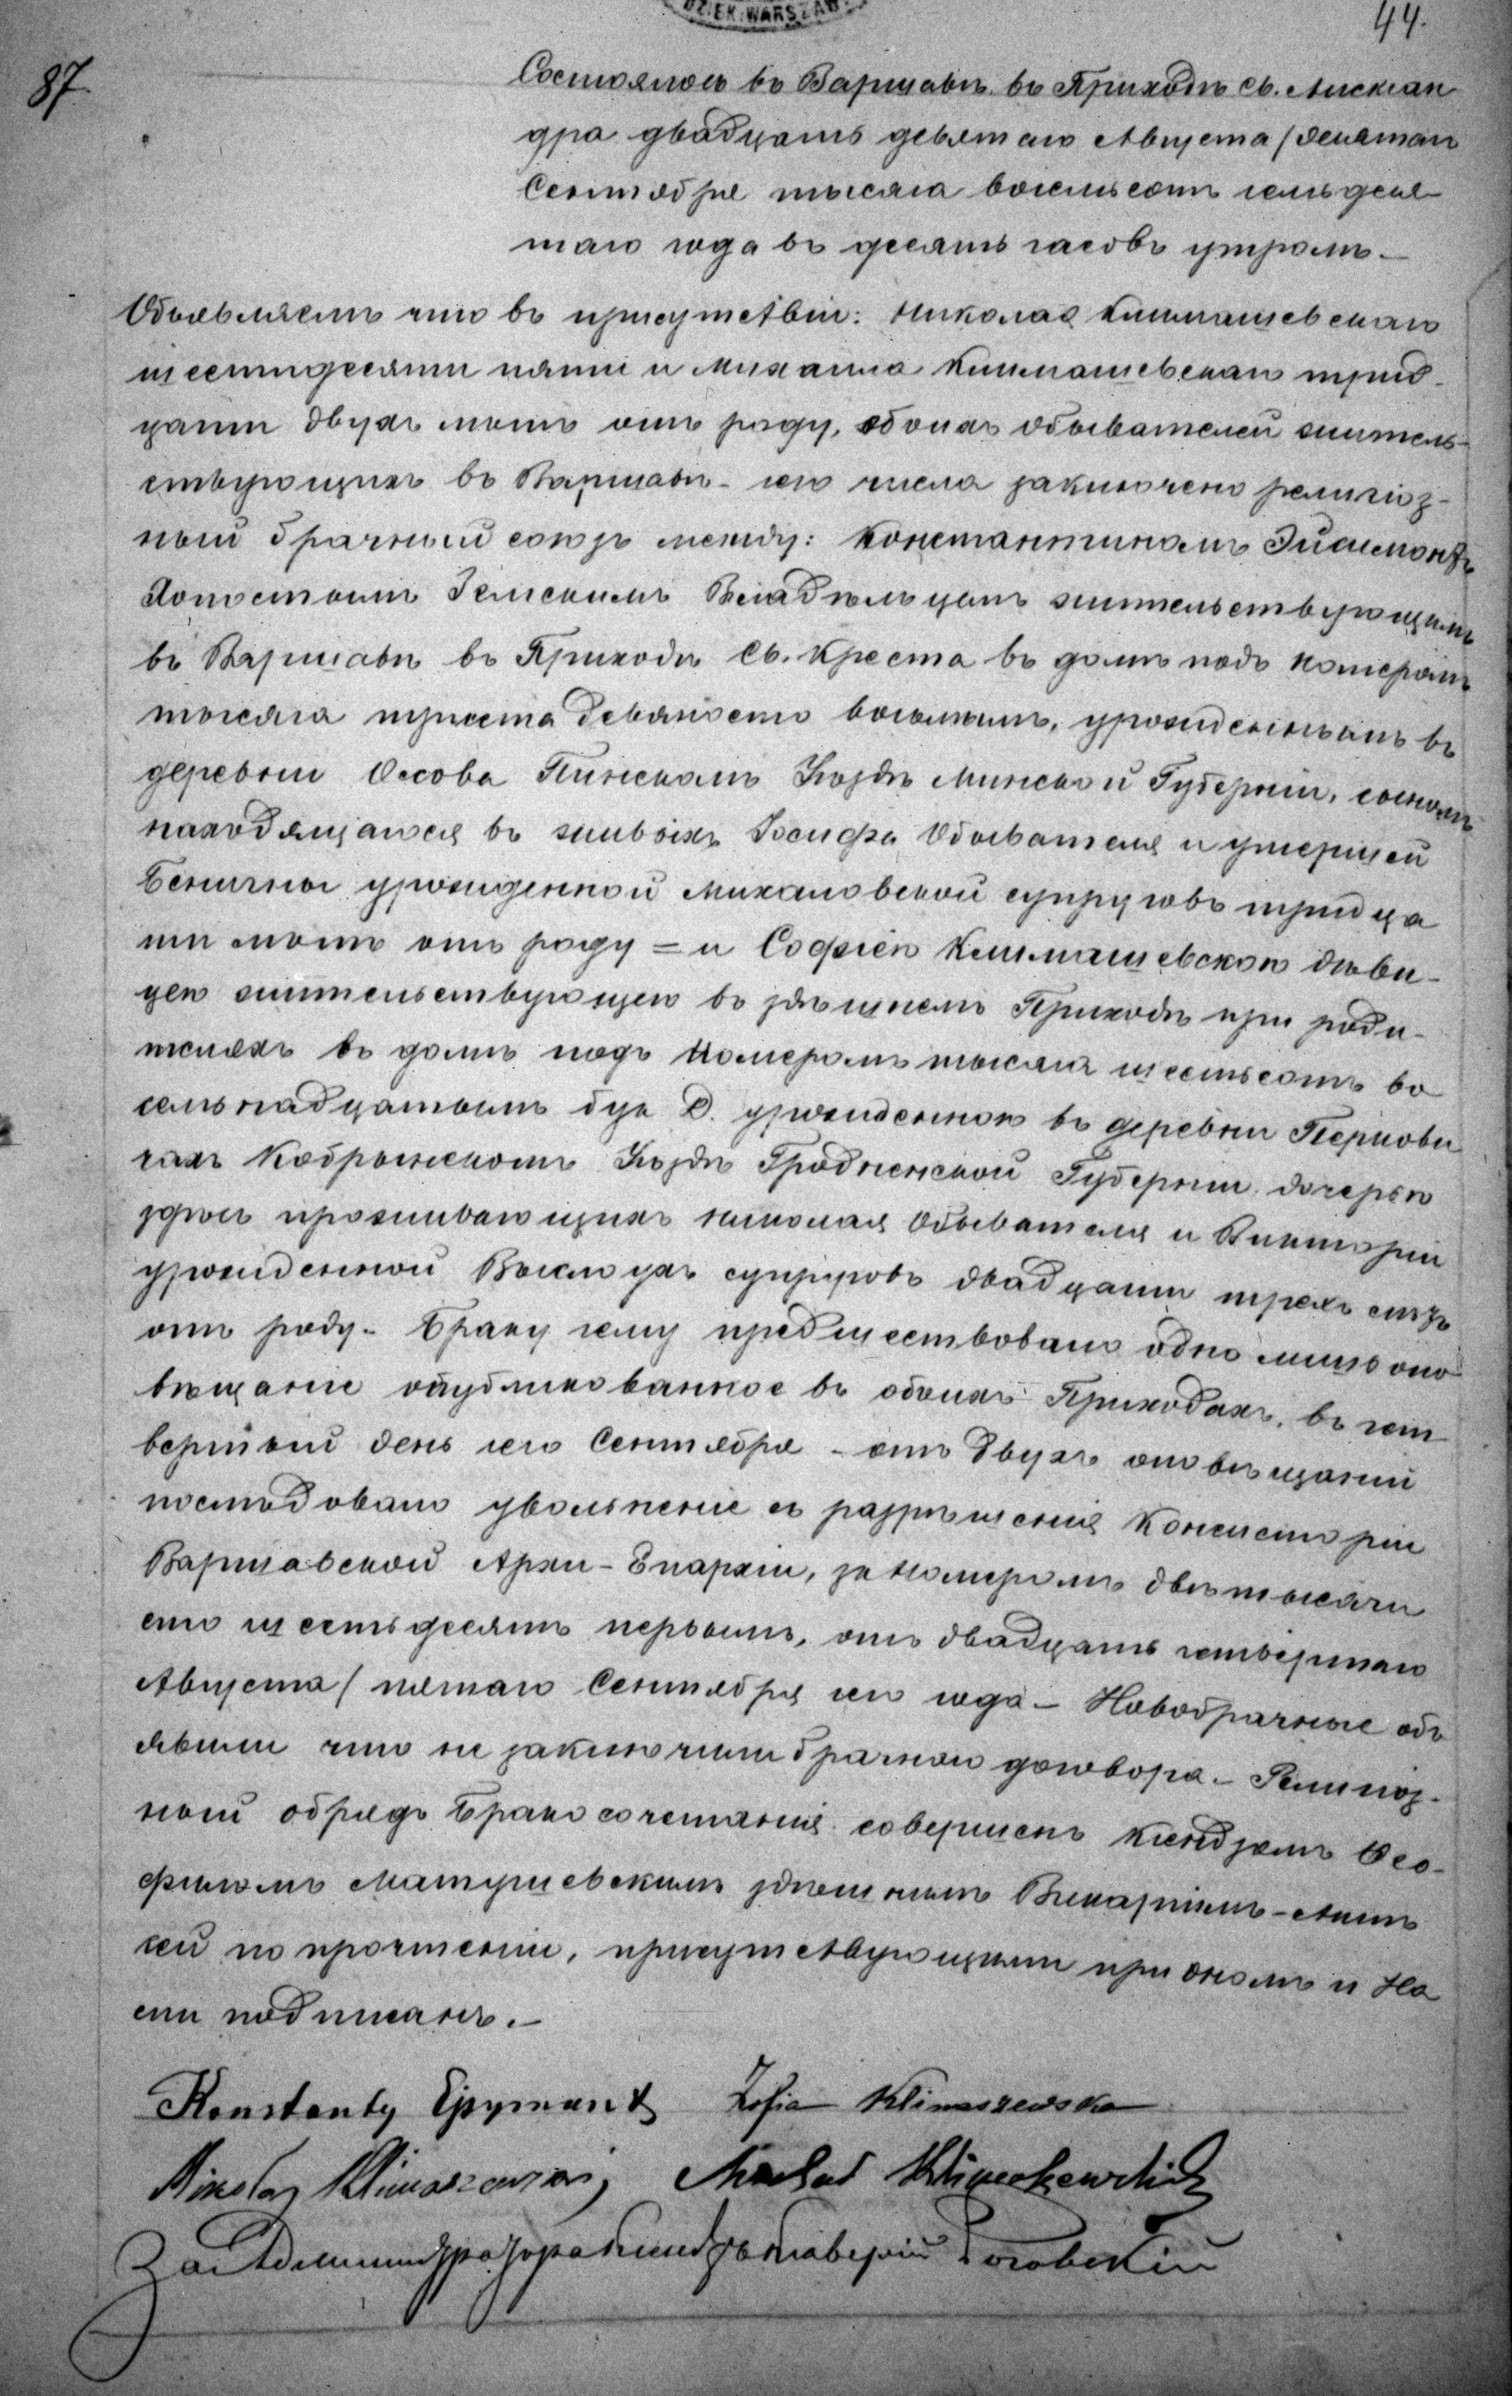 DZIEK. WARSZAW.
44.
87.
Состоялось въ Варшавѣ въ Приходѣ Св. Алексан
дра двадцать девятаго Августа / десятаго
Сентября тысяча восемьсотъ семьдеся-
таго года въ десять часовъ утромъ. —
Объявляемъ что въ присутствіи: Николая Климашевскаго
шестидесяти пяти и Михаила Климашевскаго трид-
цати двухъ лѣтъ отъ роду, обоихъ Обывателей житель-
ствующихъ въ Варшавѣ – сего числа заключено религіоз-
ный брачный союзъ между: Константиномъ Эйсымонтъ
Холостымъ Земскимъ Владѣльцемъ жительствующимъ
въ Варшавѣ въ Приходѣ Св. Креста въ домѣ подъ номеромъ
тысяча триста девяносто восьмымъ, урожденнымъ въ
деревни Оссова Пинскомъ Уѣздѣ Минской Губерніи, сыномъ
находящагося въ живыхъ Іосифа Обывателя и умершей
Бенигны урожденной Михаловской супруговъ тридца
ти лѣтъ отъ роду = и Софіею Климашевскою дѣви-
цею жительствующею въ здѣшнемъ Приходѣ при роди-
теляхъ въ домѣ подъ Номеромъ тысяча шестьсотъ во
семьнадцатымъ букв. D. урожденною въ деревни Перкови
чахъ Кобрынскомъ Уѣздѣ Гродненской Губерніи дочерью
здѣсь проживающихъ Николая Обывателя и Викторіи
урожденной супруговъ двадцати трехъ лѣтъ
отъ роду. – Браку сему предшествовало одно лишь опо
вѣщаніе опубликованное въ обоихъ Приходахъ, въ чет
вертый день сего Сентября – отъ двухъ оповѣщаній
послѣдовало увольненіе съ разрѣшенія Консисторіи
Варшавской Архи-Епархіи, за Номеромъ двѣ тысячи
сто шестьдесятъ первымъ, отъ двадцать четвертаго
Августа / пятаго Сентября сего года – Новобрачные объ
явили что не заключили брачнаго договора. – Религіоз-
ный обрядъ Бракосочетанія совершенъ Ксендзомъ Ѳео-
филомъ Матушевскимъ здѣшнимъ Викаріемъ – Актъ
сей по прочтеніи, присутствующими при ономъ и На
ми подписанъ. –
Konstanty Ejsymont Zofia Klimaszewska
Mikołaj Klimaszewski Michał Klimaszewski
За Администратора Ксендзъ Ксаверій